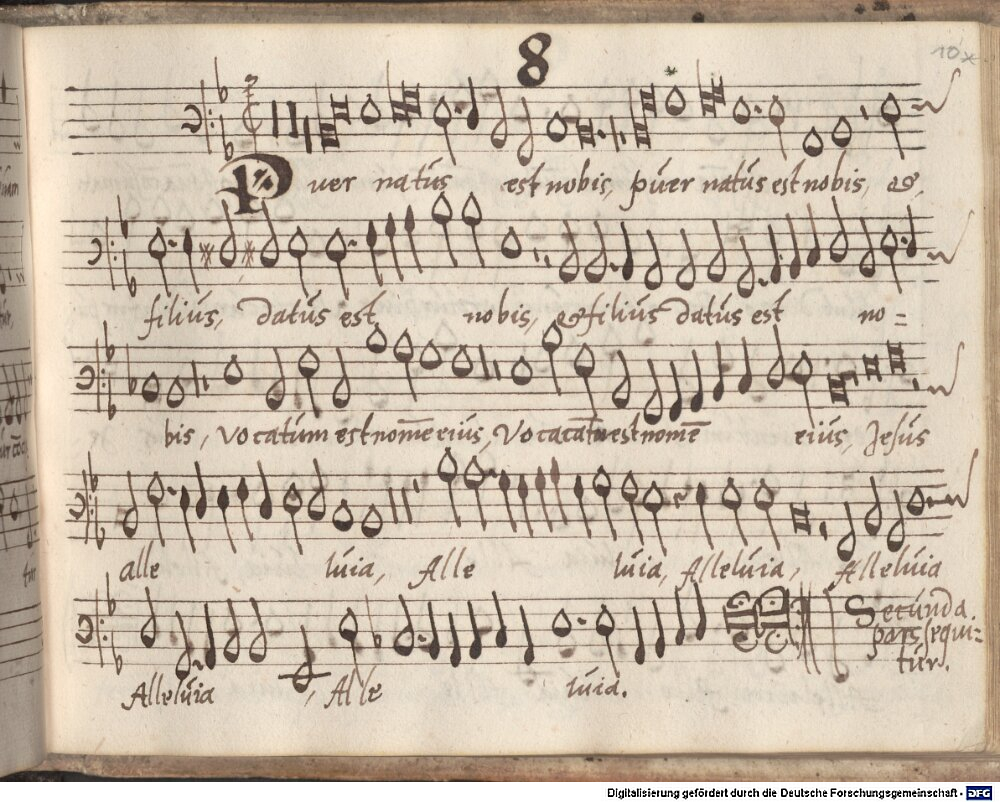 8
10x
Puer natus est nobis, puer natus est nobis, &
filius, datus est nobis, & filius datus est no=
bis, vocatum est nome eius, Vocacatu est nome eius, Jesus
alle luia, Alle luia, Alleluia, Alleluia
Alleluia, Alle luia.
Secunda
pars sequi=
tur.
Digitalisierung gefördert durch die Deutsche Forschungsgemeinschaft - DFG